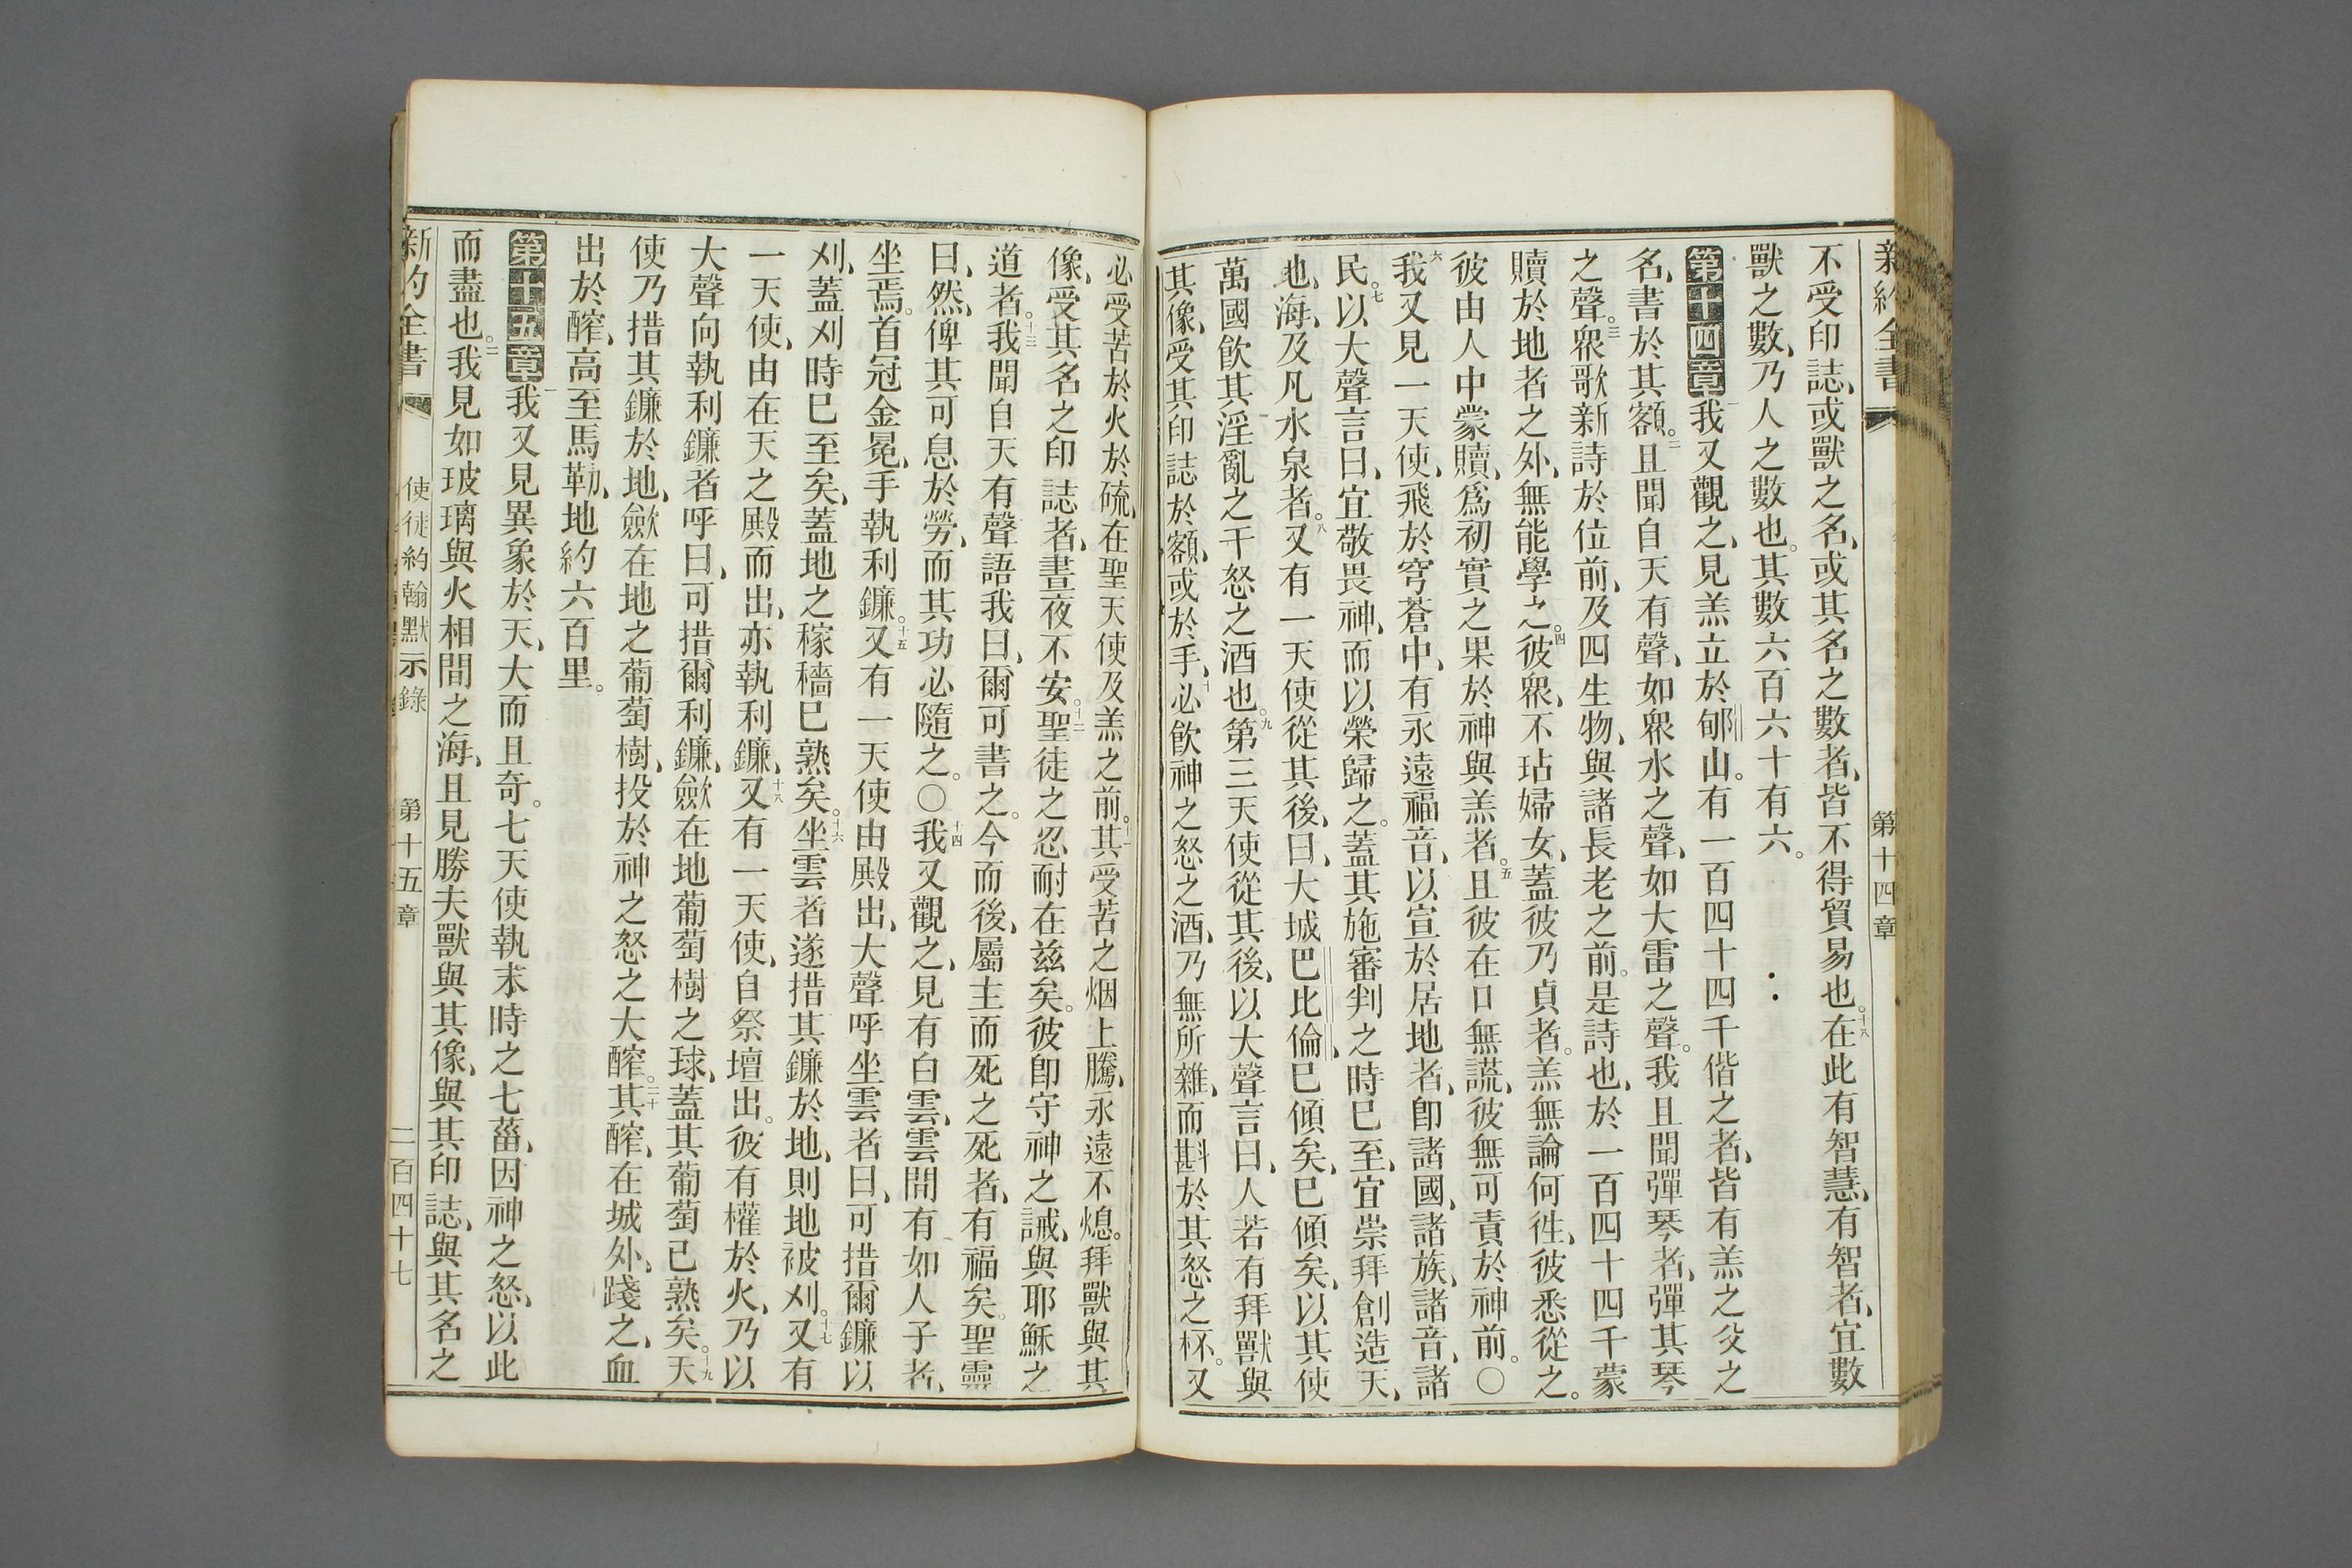 新約全書
第十四章
不受印誌、或獸之名、或其名之數者、皆不得貿易也。十八在此有智慧、有智者、宜數
獸之數、乃人之數也。其數六百六十有六。
第十四章一我又觀之、見羔立於郇山。有一百四十四千偕之者、皆有羔之父之
名、書於其額。二且聞自天有聲、如衆水之聲、如大雷之聲。我且聞彈琴者、彈其琴
之聲。三衆歌新詩於位前、及四生物、與諸長老之前。是詩也、於一百四十四千蒙
贖於地者之外、無能學之。四彼衆、不玷婦女、蓋彼乃貞者。羔無論何徃、彼悉從之。
彼由人中蒙贖、爲初實之果於神與羔者。五且彼在口無謊、彼無可責於神前。〇
六我又見一天使、飛於穹蒼中、有永遠福音、以宣於居地者、卽諸國、諸族、諸音、諸
民。七以大聲言曰、宜敬畏神、而以榮歸之。蓋其施審判之時已至、宜崇拜創造天、
地、海、及凡水泉者。八又有一天使從其後、曰、大城巴比倫已傾矣、已傾矣、以其使
萬國飮其淫亂之干怒之酒也。九第三天使從其後、以大聲言曰、人若有拜獸與
其像、受其印誌於額、或於手、十必飮神之怒之酒、乃無所雜、而斟於其怒之杯。又
必受苦於火於硫、在聖天使及羔之前。十一其受苦之烟上騰、永遠不熄。拜獸與其
像、受其名之印誌者、晝夜不安。十二聖徒之忍耐在兹矣。彼卽守神之誡、與耶穌之
道者。十三我聞自天有聲語我曰、爾可書之。今而後、屬主而死之死者、有福矣。聖靈
曰、然、俾其可息於勞、而其功必隨之。〇十四我又觀之、見有白雲、雲間有如人子者、
坐焉。首冠金冕、手執利鐮。十五又有一天使由殿出、大聲呼坐雲者曰、可措爾鐮以
刈、蓋刈時已至矣、蓋地之稼穡已熟矣。十六坐雲者遂措其鐮於地、則地被刈。十七又有
一天使、由在天之殿而出、亦執利鐮、十八又有一天使、自祭壇出。彼有權於火、乃以
大聲向執利鐮者呼曰、可措爾利鐮、歛在地葡萄樹之球、蓋其葡萄已熟矣。十九天
使乃措其鐮於地、歛在地之葡萄樹、投於神之怒之大醡。二十其醡、在城外、踐之、血
出於醡、高至馬勒、地約六百里。
第十五章一我又見異象於天、大而且奇。七天使執末時之七菑、因神之怒、以此
而盡也。二我見如玻璃與火相間之海、且見勝夫獸與其像、與其印誌、與其名之
新約全書
使徒約翰默示錄
第十五章
二百四十七